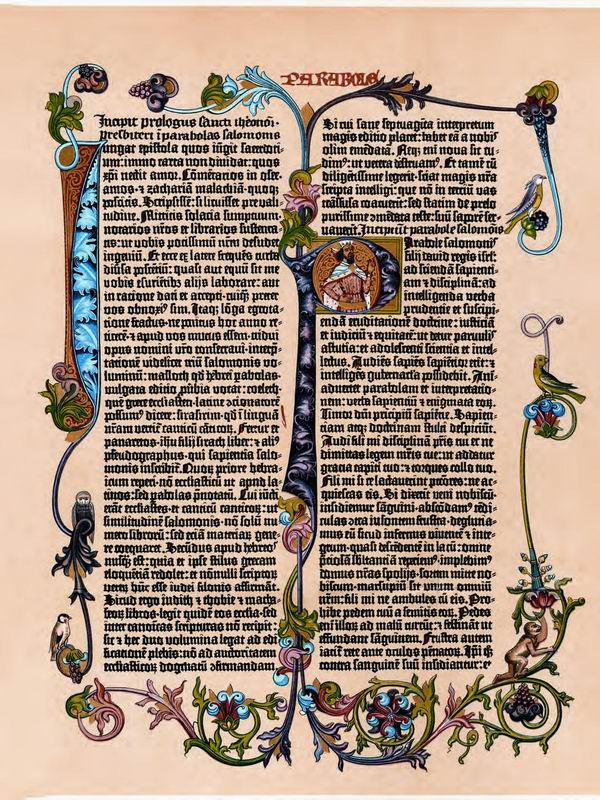 PARABOLE
Incipit prologus sancti iheronimi
presbiteri i parabolas salomonis
Iungat epistola quos iũgit sacerdoti-
um: immo carta non dividat: quos
xpi nectit amor. Cõmẽtarios in osee·
amos·⁊ zachariã malachiã·quoq;
poscitis. Scripsissẽ: si licuisset pre vali-
tudine. Mittitis solacia sumptuum·
notarios nr̃os et librarios sustenta-
tis: ut vobis potissimũ nr̃m desudet
ingeniũ. Et ecce ex latere frequẽs turba
diversa poscẽtiũ: quasi aut equũ sit me
vobis esurientibꝫ alijs laborare: aut
in ratione dati et accepti·cuiq̃; preter
vos obnoxiꝰ sim. Itaq; lõga egrota-
tione fractus·ne penitus hoc anno re-
ticerẽ·⁊ apud vos mutus essem·tridui
opus nomini vr̃o consecravi·interp̃-
tationẽ videlicet triũ salomonis vo-
luminũ: masloth qð hebrei pabolas·
vulgata editio p̃vbia vocat: coeleth·
quẽ grece ecclesiasten·latine ↄcionatorẽ
possumꝰ dicere: sirasirim·qð i linguã
nr̃am vertit̃ canticũ cãticoꝝ. Fertur et
panaretos·ihũ filij sirach liber: ⁊ aliꝰ
pseudographus·qui sapientia salo-
monis inscribit̃. Quoꝝ priorẽ hebra-
icum reperi·nõ ecclesiasticũ ut apud la-
tinos: sed pabolas p̃notatũ. Cui iũcti
erãt ecclesiastes·et canticũ canticoꝝ: ut
similitudinẽ salomonis·nõ solũ nu-
mero librorũ: sed eciã materiaꝝ gene-
re coequaret. Secũdus apud hebreos
nusq̃ est: quia et ipse stilus grecam
eloquẽtiã redolet: et nonnulli scriptoꝝ
veteꝝ hũc esse iudei filonis affirmãt.
Sicud ergo iudith ⁊ thobie ⁊ macha-
beoꝝ libros·legit quidẽ eos ecclesia·sed
inter canonicas scripturas nõ recipit:
sic ⁊ hec duo volumina legat ad edi-
ficationẽ plebis: nõ ad auctoritatem
ecclesiasticoꝝ dogmatũ ↄfirmandam.
Si cui sane septuaginta interpretum
magis editio placet: habet eã a nobis
olim emẽdatã. Neq; eni nova sic cu-
dimꝰ: ut vetera destruamꝰ. Et tamẽ cũ
diligẽtissime legerit·sciat magis nr̃a
scripta intelligi: que nõ in terciũ vas
trãsfusa coacuerint: sed statim de prelo
purissime ↄmẽdata teste: suũ saporẽ ser-
vaverĩt. Incipiunt parabole salomõis
Parabole salomonis
filij david regis isrl̃:
ad sciendã sapienti-
am ⁊ disciplinã: ad
intelligenda verba
prudentie et suscipi-
endã eruditationẽ doctrine: iusticiã
et iudiciũ ⁊ equitatẽ: ut detur parvulis
astutia: et adolescenti scientia et intel-
lectus. Audiẽs sapiẽs sapiẽtior erit: ⁊
intelligẽs gubernacla possidebit. Ani-
advertet parabolam et interpretatio-
nem: verba sapientiũ ⁊ enigmata eoꝝ.
Timor dñi principiũ sapiẽtie. Sapien-
tiam atq; doctrinam stulti despiciũt.
Audi fili mi disciplinã pr̃is tui et ne
dimittas legem mr̃is tue: ut addatur
gratia capiti tuo: ⁊ torques collo tuo.
Fili mi si te lactaverint pctõres: ne ac-
quiescas eis. Si dixerit veni nobiscũ·
insidiemur sãguini·abscõdamꝰ tedi-
culas ↄtra insontem frustra·degluti-
amus eũ sicud infernus viventẽ ⁊ inte-
grum·quasi descẽdentẽ in lacũ: omnẽ
p̃ciosã substanciã repiemꝰ·implebimꝰ
domus nr̃as spolijs·sortem mitte no-
biscum·marsupiũ sit unum omniũ
nr̃m: fili mi ne ambules cũ eis. Pro-
hibe pedem tuũ a semitis eoꝝ. Pedes
eni illoꝝ ad malũ currũt: ⁊ festinãt ut
effundant sãguinem. Frustra autem
iacit̃ rete ante oculos pẽnatoꝝ. Ipi q̃;
contra sanguinẽ suũ insidiantur: et